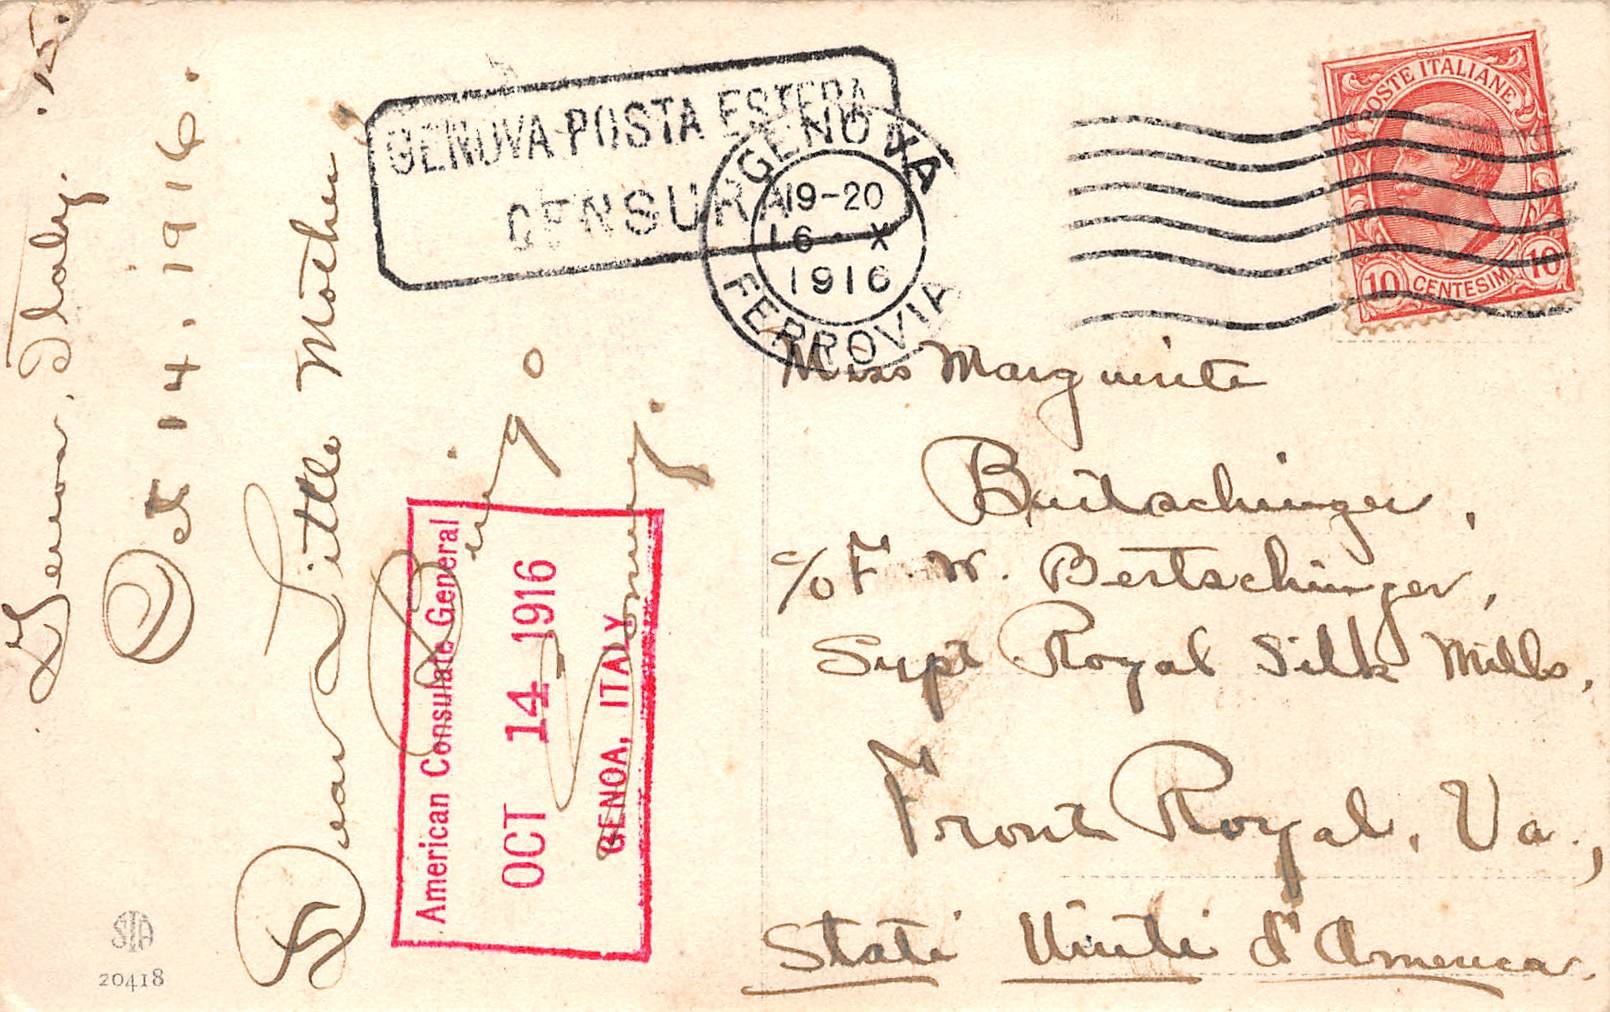 Genova, Italy.
Oct 14, 1916.
Dear Little Mother
American Consulate General
OCT 14 1916
GENOA, ITALY
STA
20418
GENOVA POSTA ESTERA
CENSURA
GENOVA
19-20
16 X
1916
FERROVIA
POSTE ITALIANE
10 CENTESIMI 10
Miss Marguirite
Bertschinger,
c/o F. W. Bertschinger,
Supt Royal Silk Mills,
Front Royal, Va.,
Stati Uniti d'America.